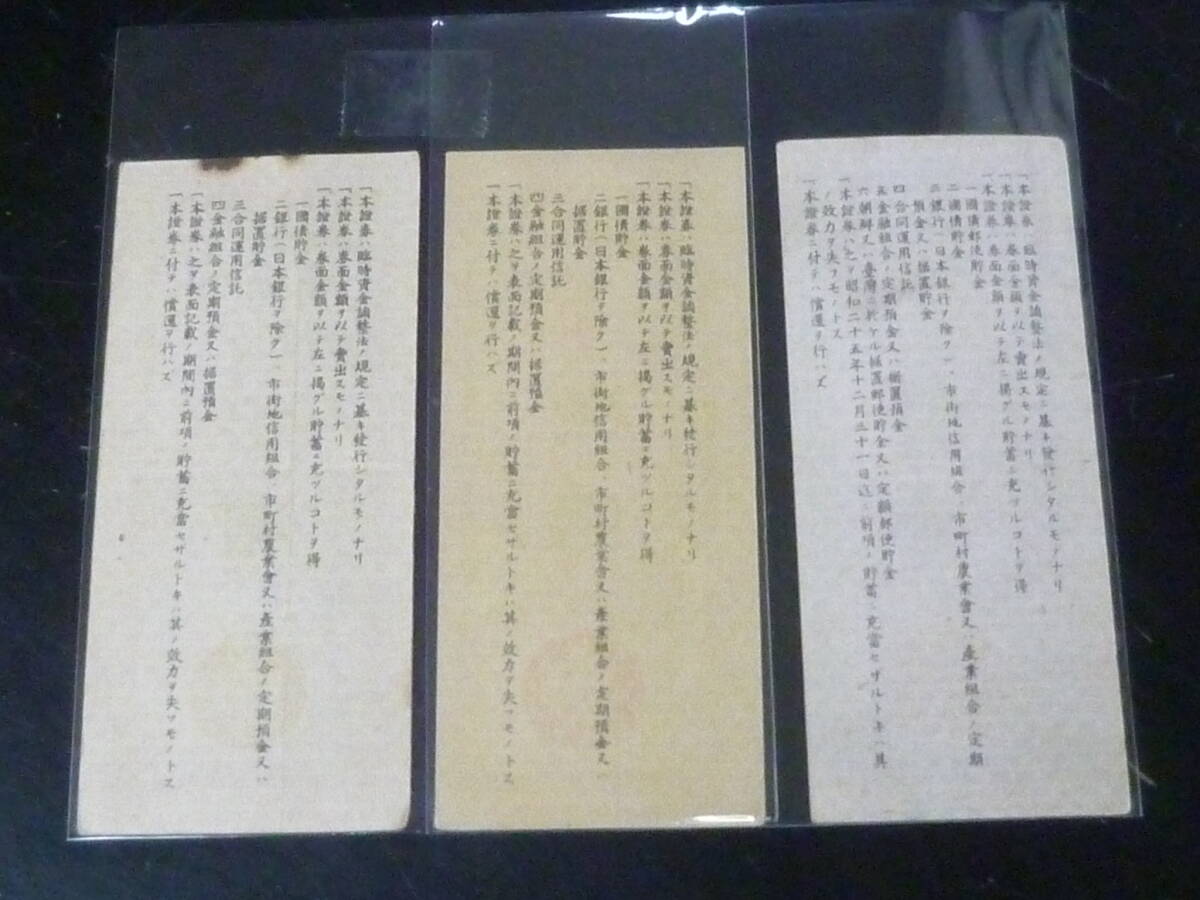 一本證券ハ臨時資金調整法ノ規定ニ基キ發行シタルモノナリ
一本證券ハ券面金額ヲ以テ賣出スモノナリ
一本證券ハ券面金額ヲ以テ左ニ揭グル貯蓄ニ充ツルコトヲ得
一國債郵便貯金
二國債貯金
三銀行(日本銀行ヲ除ク)、市街地信用組合、市町村農業會又ハ產業組合ノ定期
預金又ハ据置貯金
四合同運用信託
五金融組合ノ定期預金又ハ据置預金
六朝鮮又ハ臺灣ニ於ケル据置郵便貯金又ハ定額郵便貯金
一本證券ハ之ヲ昭和二十五年十二月三十一日迄ニ前項ノ貯蓄ニ充當セザルトキハ其
ノ效力ヲ失フモノトス
一本證券ニ付テハ償還ヲ行ハズ
一本證券ハ臨時資金調整法ノ規定ニ基キ發行シタルモノナリ
一本證券ハ券面金額ヲ以テ賣出スモノナリ
一本證券ハ券面金額ヲ以テ左ニ揭グル貯蓄ニ充ツルコトヲ得
一國債貯金
二銀行(日本銀行ヲ除ク)、市街地信用組合、市町村農業會又ハ產業組合ノ定期預金又ハ
据置貯金
三合同運用信託
四金融組合ノ定期預金又ハ据置預金
一本證券ハ之ヲ表面記載ノ期間內ニ前項ノ貯蓄ニ充當セザルトキハ其ノ效力ヲ失フモノトス
一本證券ニ付テハ償還ヲ行ハズ
一本證券ハ臨時資金調整法ノ規定ニ基キ發行シタルモノナリ
一本證券ハ券面金額ヲ以テ賣出スモノナリ
一本證券ハ券面金額ヲ以テ左ニ揭グル貯蓄ニ充ツルコトヲ得
一國債貯金
二銀行(日本銀行ヲ除ク)、市街地信用組合、市町村農業會又ハ產業組合ノ定期預金又ハ
据置貯金
三合同運用信託
四金融組合ノ定期預金又ハ据置預金
一本證券ハ之ヲ表面記載ノ期間內ニ前項ノ貯蓄ニ充當セザルトキハ其ノ效力ヲ失フモノトス
一本證券ニ付テハ償還ヲ行ハズ